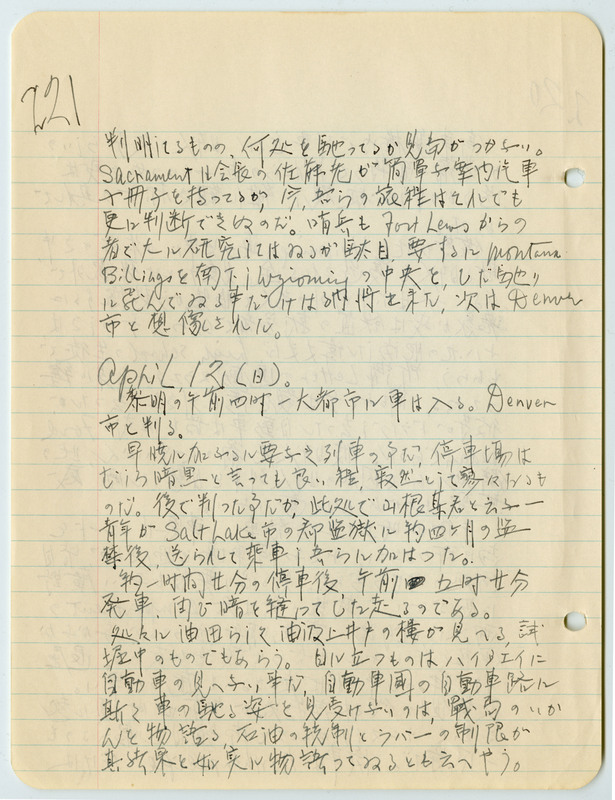 221
判明してるものの、何処を馳ってるか見当がつかない。
Sacrament は会長の佐静光が簡単な案内汽車
の冊子を持ってるが、今、吾らの旅程はそれでも
更に判断できぬのだ。哨兵も Fort Lewis からの
者で大に研究してはゐるが駄目、要するに Montana
Billings を南下し Wyioming の中央を、ひた馳り
に飛んでゐる事だけは納得出来た、次は Denver
市と想像された。
April, 12, (日)。
黎明の午前四時 一大都市に車は入る。Denver
市と判る。
早暁に加ふるに要なき列車の事だ、停車場は
むしろ暗黒と言っても良い程、寂然として寥々たるも
のだ。後で判った事だが、此処で山根某君と云ふ一
青年が Salt Lake 市の郡監獄に約四ヶ月の監
禁後、送られて乗車し吾らに加はった。
約一時間廿分の停車後、午前五時廿分
発車、再び暗を縫ってひた走るのである。
処々に油田らしく油汲上井戸の櫓が見へる、試
掘中のものでもあらう。目に立つものはハイウエイに
自動車の見へない事だ、自動車国の自動車路に
斯く車の馳る姿を見受けないのは、戦局のいか
んを物語る 石油の統制とラバーの制限が
其結果を如実に物語ってゐるとも云へやう。